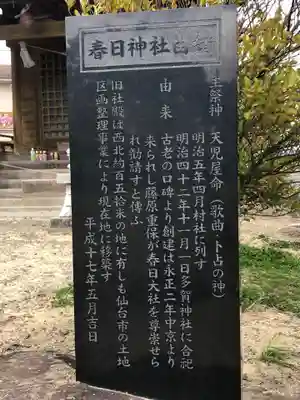 春日神社由緒
主祭神 天児屋命（歌曲・卜占の神）
明治五年四月村社に列す
明治四十二年十一月一日多賀神社に合祀
由来
古老の口碑より創建は永正二年中京より
来られし藤原重保が春日大社を尊崇せら
れ勧請すと傳ふ
旧社殿は西北約百五拾米の地に有しも仙台市の土地
区画整理事業により現在地に移築す
平成十七年五月吉日